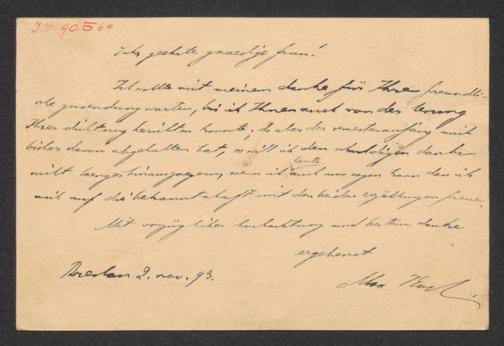 I.N. 90.560
Sehr geehrte gnaedige frau!
Ich wollte mit meinem danke für Ihre freundli-
che zusendung warten, bis ich Ihnen auch von der lesung
Ihrer dichtung berichten konnte, da aber der semesteranfang mich
bisher davon abgehalten hat, so will ich den schuldigen dank
nicht laenger hinausschieben, wenn ich heute auch nur sagen kann dass ich
mich auf die bekanntschaft mit den beiden erzählungen freue.
Mit vorzüglicher hochachtung und bestem danke
ergebenst
Breslau 2. nov. 93. Max Koch.